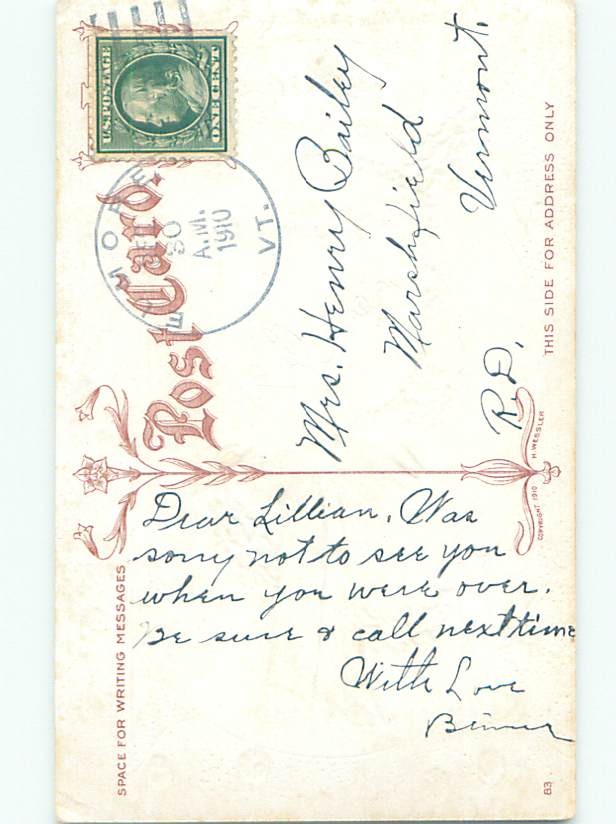 U.S. POSTAGE
ONE CENT
30
A.M.
1910
VT.
Post Card.
Mrs. Henry Bailey
Marshfield
Vermont.
R.D.
THIS SIDE FOR ADDRESS ONLY
COPYRIGHT 1910 H. WESSLER
SPACE FOR WRITING MESSAGES
Dear Lillian. Was
sorry not to see you
when you were over.
Be sure & call next time
With Love
83